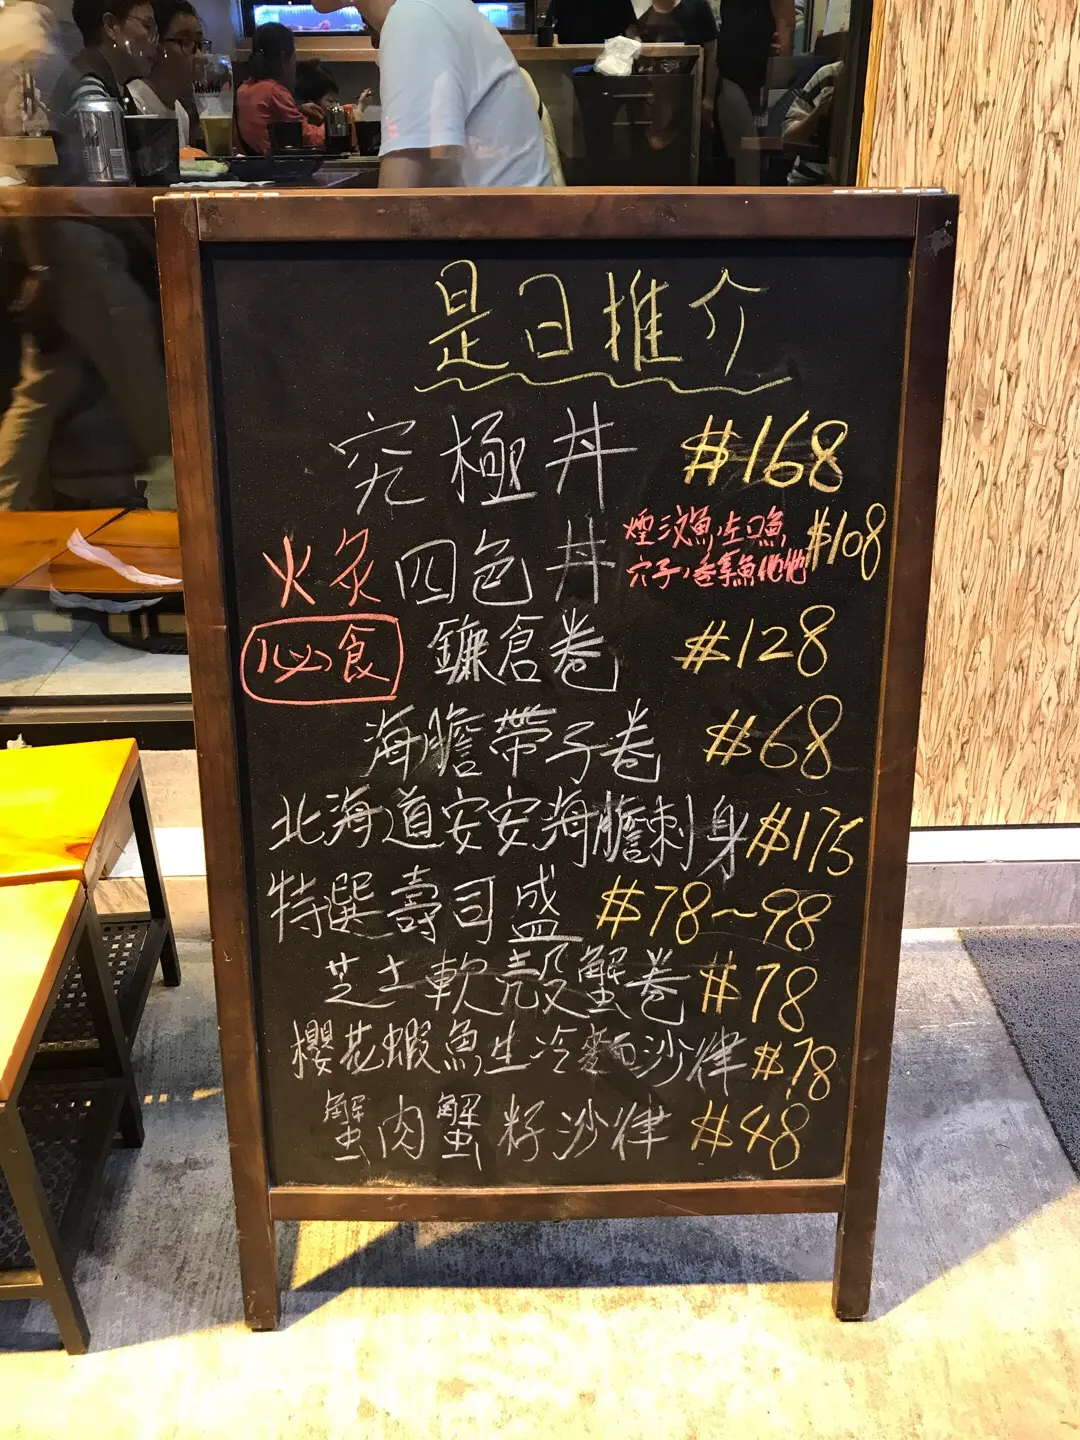 是日推介
究極丼 $168
火炙四色丼 煙三文魚,左口魚 穴子,吞拿魚他他 $108
必食 鐮倉卷 $128
海膽帶子卷 $68
北海道安安海膽刺身 $175
特選壽司盛 $78~98
芝士軟殼蟹卷 $78
櫻花蝦魚生冷麵沙律 $78
蟹肉蟹籽沙律 $48